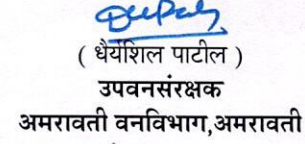 ( धैर्यशिल पाटील )
उपवनसंरक्षक
अमरावती वनविभाग,अमरावती